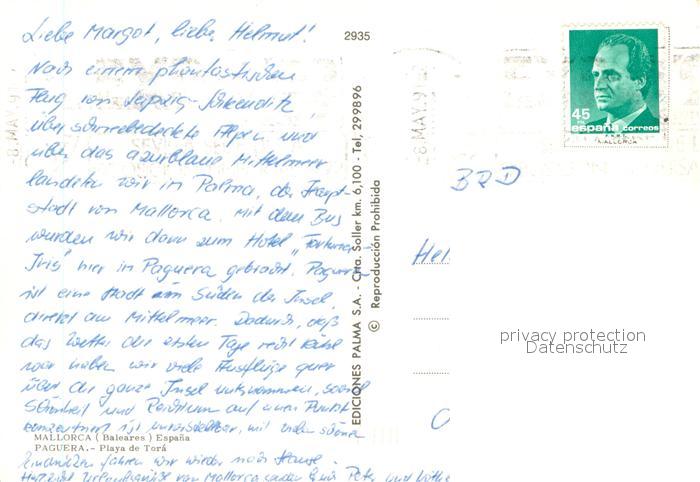 Liebe Margot, liebe Helmut!
Nach einem phantastischen
Flug von Leipzig-Schkeuditz
über schneebedeckte Alpen und
über das azurblaue Mittelmeer
landeten wir in Palma, der Haupt-
stadt von Mallorca. Mit dem Bus
wurden wir dann zum Hotel
Iris" hier in Paguera gebracht. Paguera
ist eine Stadt im Süden der Insel,
direkt am Mittelmeer. Dadurch, daß
das Wetter die ersten Tage recht kühl
war haben wir viele Ausflüge quer
über die ganze Insel unternommen, soviel
Schönheit und Reichtum auf einen Punkt
konzentriert ist unvorstellbar, mit vielen schönen
Eindrücken fahren wir wieder nach Hause.
Herzliche Urlaubsgrüße von Mallorca senden Euch Peter und
MALLORCA (Baleares) España
PAGUERA.- Playa de Torá
2935
EDICIONES PALMA S.A. - Ctra. Soller km. 6,100 - Tel, 299896
© Reproducción Prohibida
8.MAY.9
8.MAY.9
45
PTA
españa correos
MALLORCA
BRD
Hel
privacy protection
Datenschutz